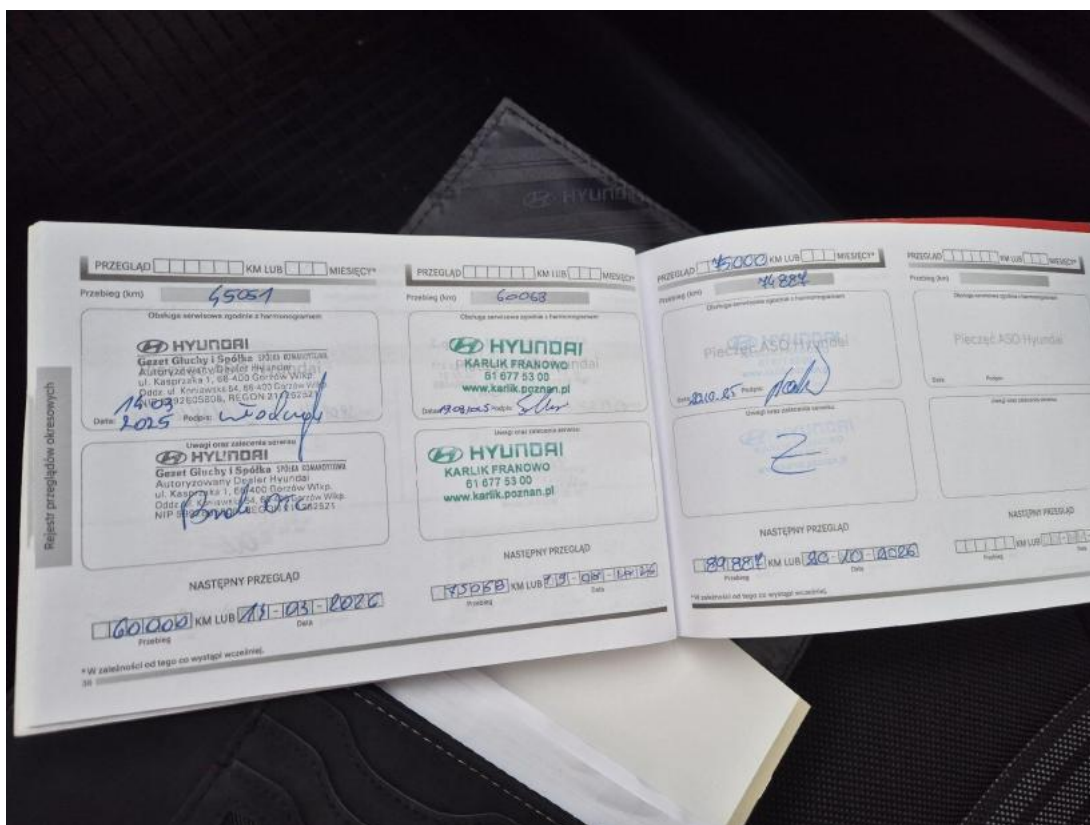 HYUNDAI
Rejestr przeglądów okresowych
PRZEGLĄD KM LUB MIESIĘCY*
Przebieg (km) 45051
Obsługa serwisowa zgodnie z harmonogramem
HYUNDAI
Gezet Głuchy i Spółka SPÓŁKA KOMANDYTOWA
Autoryzowany Dealer Hyundai
ul. Kasprzaka 1, 66-400 Gorzów Wlkp.
Data: 14-03 2025 Podpis:
Uwagi oraz zalecenia serwisu
HYUNDAI
Gezet Głuchy i Spółka SPÓŁKA KOMANDYTOWA
Autoryzowany Dealer Hyundai
ul. Kasprzaka 1, 66-400 Gorzów Wlkp.
NASTĘPNY PRZEGLĄD
60000 KM LUB 14-03-2026
Przebieg Data
*W zależności od tego co wystąpi wcześniej.
36
PRZEGLĄD KM LUB MIESIĘCY*
Przebieg (km) 60063
Obsługa serwisowa zgodnie z harmonogramem
HYUNDAI
KARLIK FRANOWO
61 677 53 00
www.karlik.poznan.pl
Data: Podpis:
Uwagi oraz zalecenia serwisu
HYUNDAI
KARLIK FRANOWO
61 677 53 00
www.karlik.poznan.pl
NASTĘPNY PRZEGLĄD
75063 KM LUB
Przebieg Data
PRZEGLĄD 75000 KM LUB MIESIĘCY*
Przebieg (km) 74887
Obsługa serwisowa zgodnie z harmonogramem
Pieczęć ASO Hyundai
Data: Podpis:
Uwagi oraz zalecenia serwisu
NASTĘPNY PRZEGLĄD
89887 KM LUB 20-10-2026
Przebieg Data
*W zależności od tego co wystąpi wcześniej.
PRZEGLĄD KM LUB MIESIĘCY*
Przebieg (km)
Obsługa serwisowa zgodnie z harmonogramem
Pieczęć ASO Hyundai
Data: Podpis:
Uwagi oraz zalecenia serwisu
NASTĘPNY PRZEGLĄD
KM LUB
Przebieg Data